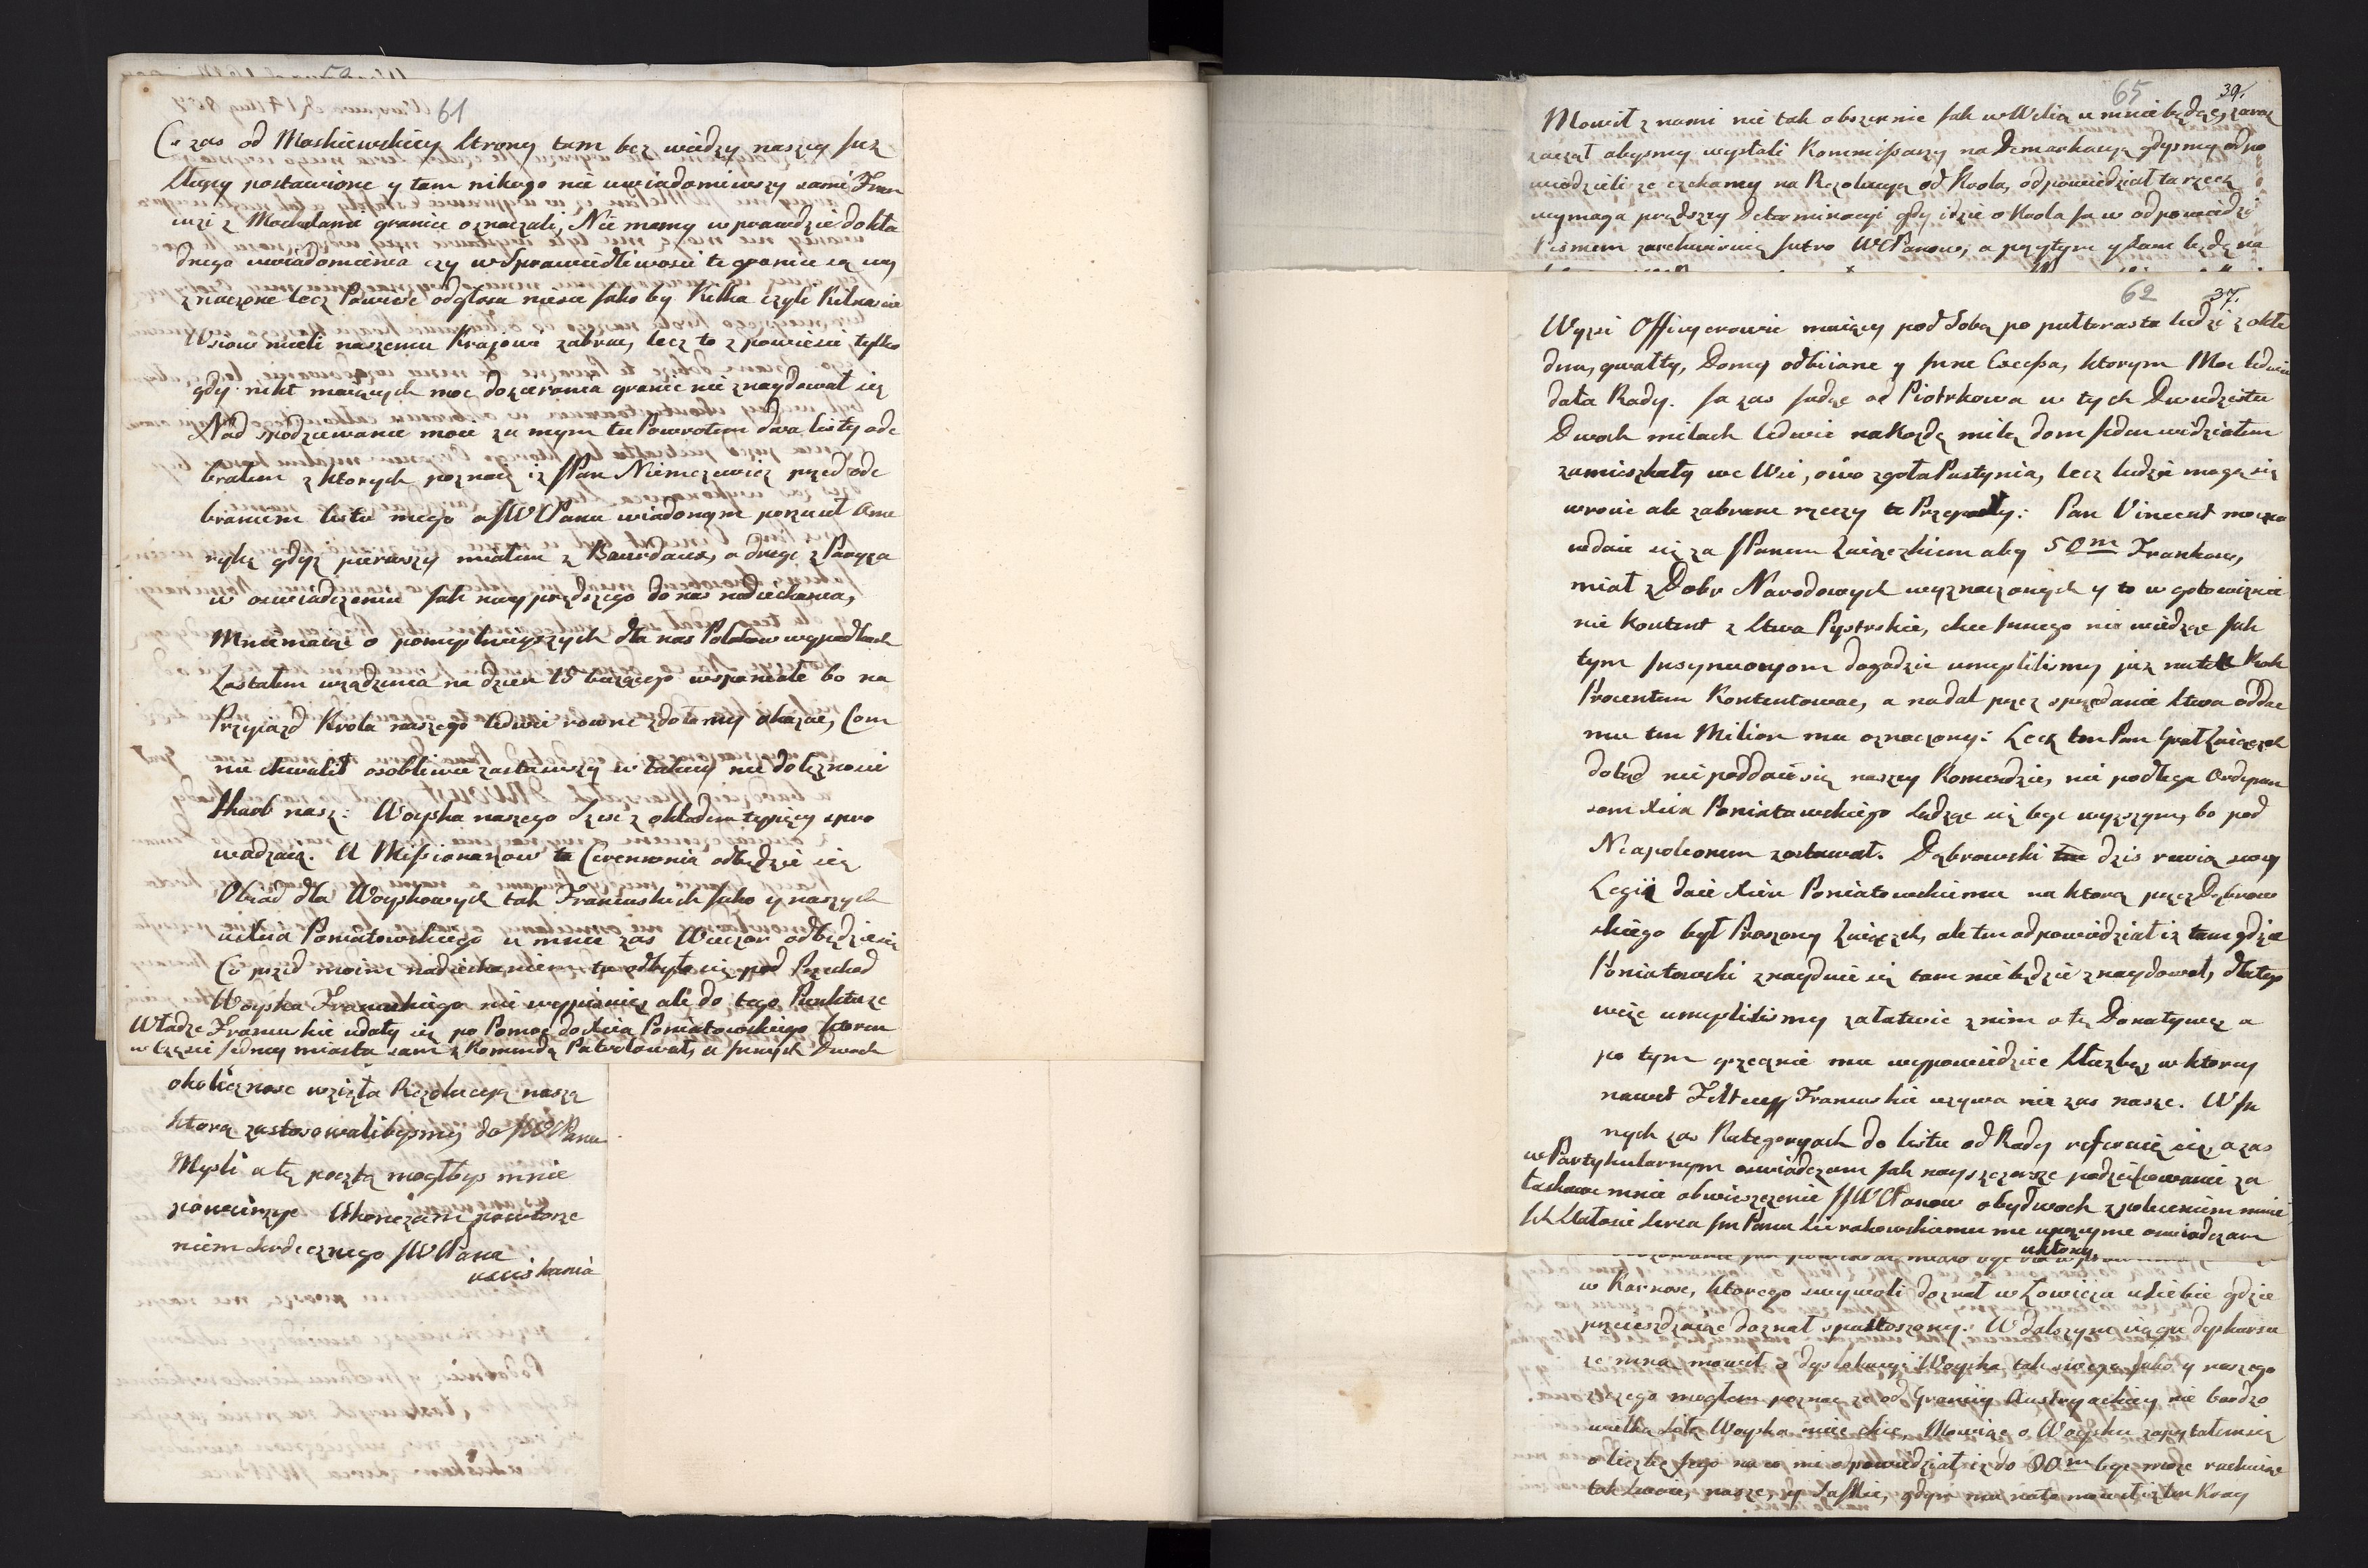 61
Co zas od Moskiewskiey strony tam bez wiedzy naszey już
słupy postawione y tam nikogo nie uwiadomiwszy sami Fran
cuzi z Moskalami granice oznaczali, Nie mamy wprawdzie dokła
dnego uwiadomienia czy w Sprawiedliwosci te granice są wy
znaczone lecz Pawne odgłosu niesie jako by Kilka czyli Kilnascie
Wsiow mieli naszemu Krajowi zabrac, lecz to z powiesci tylko
gdy nikt maiących moc dozierania granic nie znaydował się
Nad spodziewanie moie za mym tu Powrotem dwa listy ode
brałem z ktorych poznac iż JPan Niemcewicz przed ode
braniem listu mego o JWWPanu wiadomym porzucił Ame
rykę gdyż pierwszy miałem z Bourdaux, a drugi z Paryza
w oswiadczeniu jak nayprędszego do nas nadiechania,
Mniemaiąc o pomyslnieyszych dla nas Polakow wypadkach
Zastałem urządzenia na dzien 15 bieżącego wspaniałe bo na
Przyiazd Krola naszego ledwie rowne zdołamy okazac, Com
nie chwalił osobliwie zastawszy w takiey nie dołężnosci
skarb nasz: Woyska naszego Szesc z okładem tysięcy spro
wadzaią. U Missionarzow ta Ceremonia odbędzie się
Obiad dla Woyskowych tak Francuskich jako y naszych
u Xcia Poniatowskiego u mnie zas Wieczor odbędzie się
Co przed moim nadiechaniem tu odbyło się pod Przechod
Woyska Francuskiego nie wypisuię, ale do tego Punktu że
Władze Francuskie udały się po Pomoc do Xcia Poniatowskiego ktoren
w Częsci jedney miasta sam z Komendą Patrolował, a w innych Dwoch
okolicznosc wzięła Rezolucyą naszą
ktorą zastosowalibysmy do JWWPana
Mysli a tę pocztą mogłbys mnie
pouwierzyc Ukonczam powtorze
niem serdecznego JWWPana
usciskania
65 39.
Mowił z nami nie tak obszernie jak w Wilią u mnie będąc, zaraz
zaczął abysmy wysłali Kommissarzy na Demarkacyą gdysmy odpo
wiedzieli że czekamy na Rezolucyą od Krola, odpowiedział ta rzecz
wymaga prędszey Determinacyi gdy idzie o Krola ja w odpowiedzi
Pismem zarekwiruię jutro WWPanow, a przytym y sam będę na
62 37.
Wyzsi Officyerowie maiący pod Sobą po pułtorasta ludzi z okła
dem, gwałty, Domy odbiiane y inne Excessa, ktorym Moc ledwie
dała Rady. Ja zas jadąc od Piotrkowa w tych Dwudziestu
Dwoch milach ledwie na Każdą milę dom jeden widziałem
zamieszkały we Wsi, owo zgoła Pustynia, lecz ludzie mogą się
wrocic ale zabrane rzeczy te Przepadły: Pan Vincent mocno
wdaie się za JPanem Zaiączkiem aby 50m Frankow,
miał z Dobr Narodowych wyznaczonych y to w gotowiznie
nie Kontent z Stwa Pystrskie, chce innego nie wiedząc jak
tym Insynuacyom dogodzic umyslilismy już na ten Rok
Procentem Kontentowac, a nadal przez sprzedanie Stwa oddac
mu ten Milion mu oznaczony: Lecz ten Pan Grał Zaiączek
dotąd nie poddaie się naszey Komendzie, nie podlega Ordynan
som Xcia Poniatowskiego sądząc się byc wyzszym, bo pod
Neapoleonem zostawał. Dąbrowski dzis rewią swey
Legii daie Xciu Poniatowskiemu na ktorą przez Dąbrow
skiego był Proszony Zaiączek, ale ten odpowiedział iż tam gdzie
Poniatowski znayduie się tam nie będzie znaydował, dlatego
więc umyslilismy załatwic z nim o tę Donatywę a
po tym grzecznie mu wypowiedziec Służbę, w ktorey
nawet Feltcechy Francuskie używa nie zas nasze. W In
nych zas Kategoryach do listu od Rady referuię się, a zas
w Partykularnym oswiadczam jak nayszczersze podziękowanie za
łaskawe mnie obwieszczenie JJWWPanow obydwoch z poleceniem mnie
Ich Stałosci Serca Im Panu Sierakowskiemu me uprzeyme oswiadczam
ukłony
w Karnosc, ktorego swywoli doznał w Łowiczu u siebie gdzie
przeieżdzaiąc doznał spustoszony. W dalszym ciągu dyskursu
ze mną mowił o dyslokacyi Woyska tak swego jako y naszego
z czego mogłem poznac że od Granicy Austryackiey nie bardzo
wielką siłę Woyska miec chce, Mowiąc o Woysku zapytałem się
o liczbę jego na co mi odpowiedział iż do 80m byc może rachuiąc
tak swoie, nasze, y Saskie, gdym mu na to mowił iż ten Kray